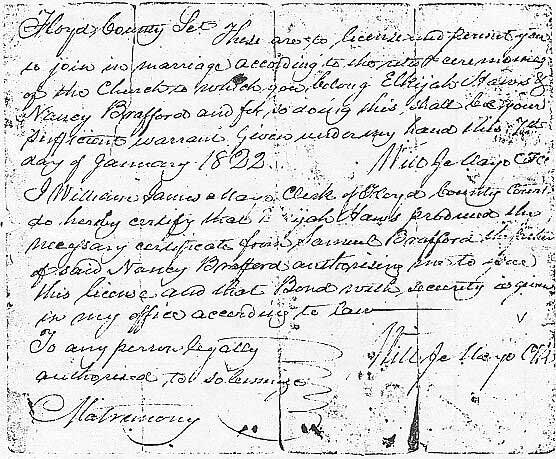 Floyd County Sct. These are to license and permit you
to join in marriage according to the rites & ceremonies
of the Church to which you belong Elkijah Haws &
Nancy Brafford and for so doing this shall be your
sufficient warrant Given under my hand this 7th
day of January 1822 Will Ja Mayo CFC
I William James Mayo Clerk of Floyd County Court
do hereby certify that yah Haws produced the
necessary certificate from Samuel Brafford the father
of said Nancy Brafford authorising me to issue
this license and that Bond with security is given
in my office according to law
To any person legally
authorised to solemnize Will Ja Mayo
Matrimony